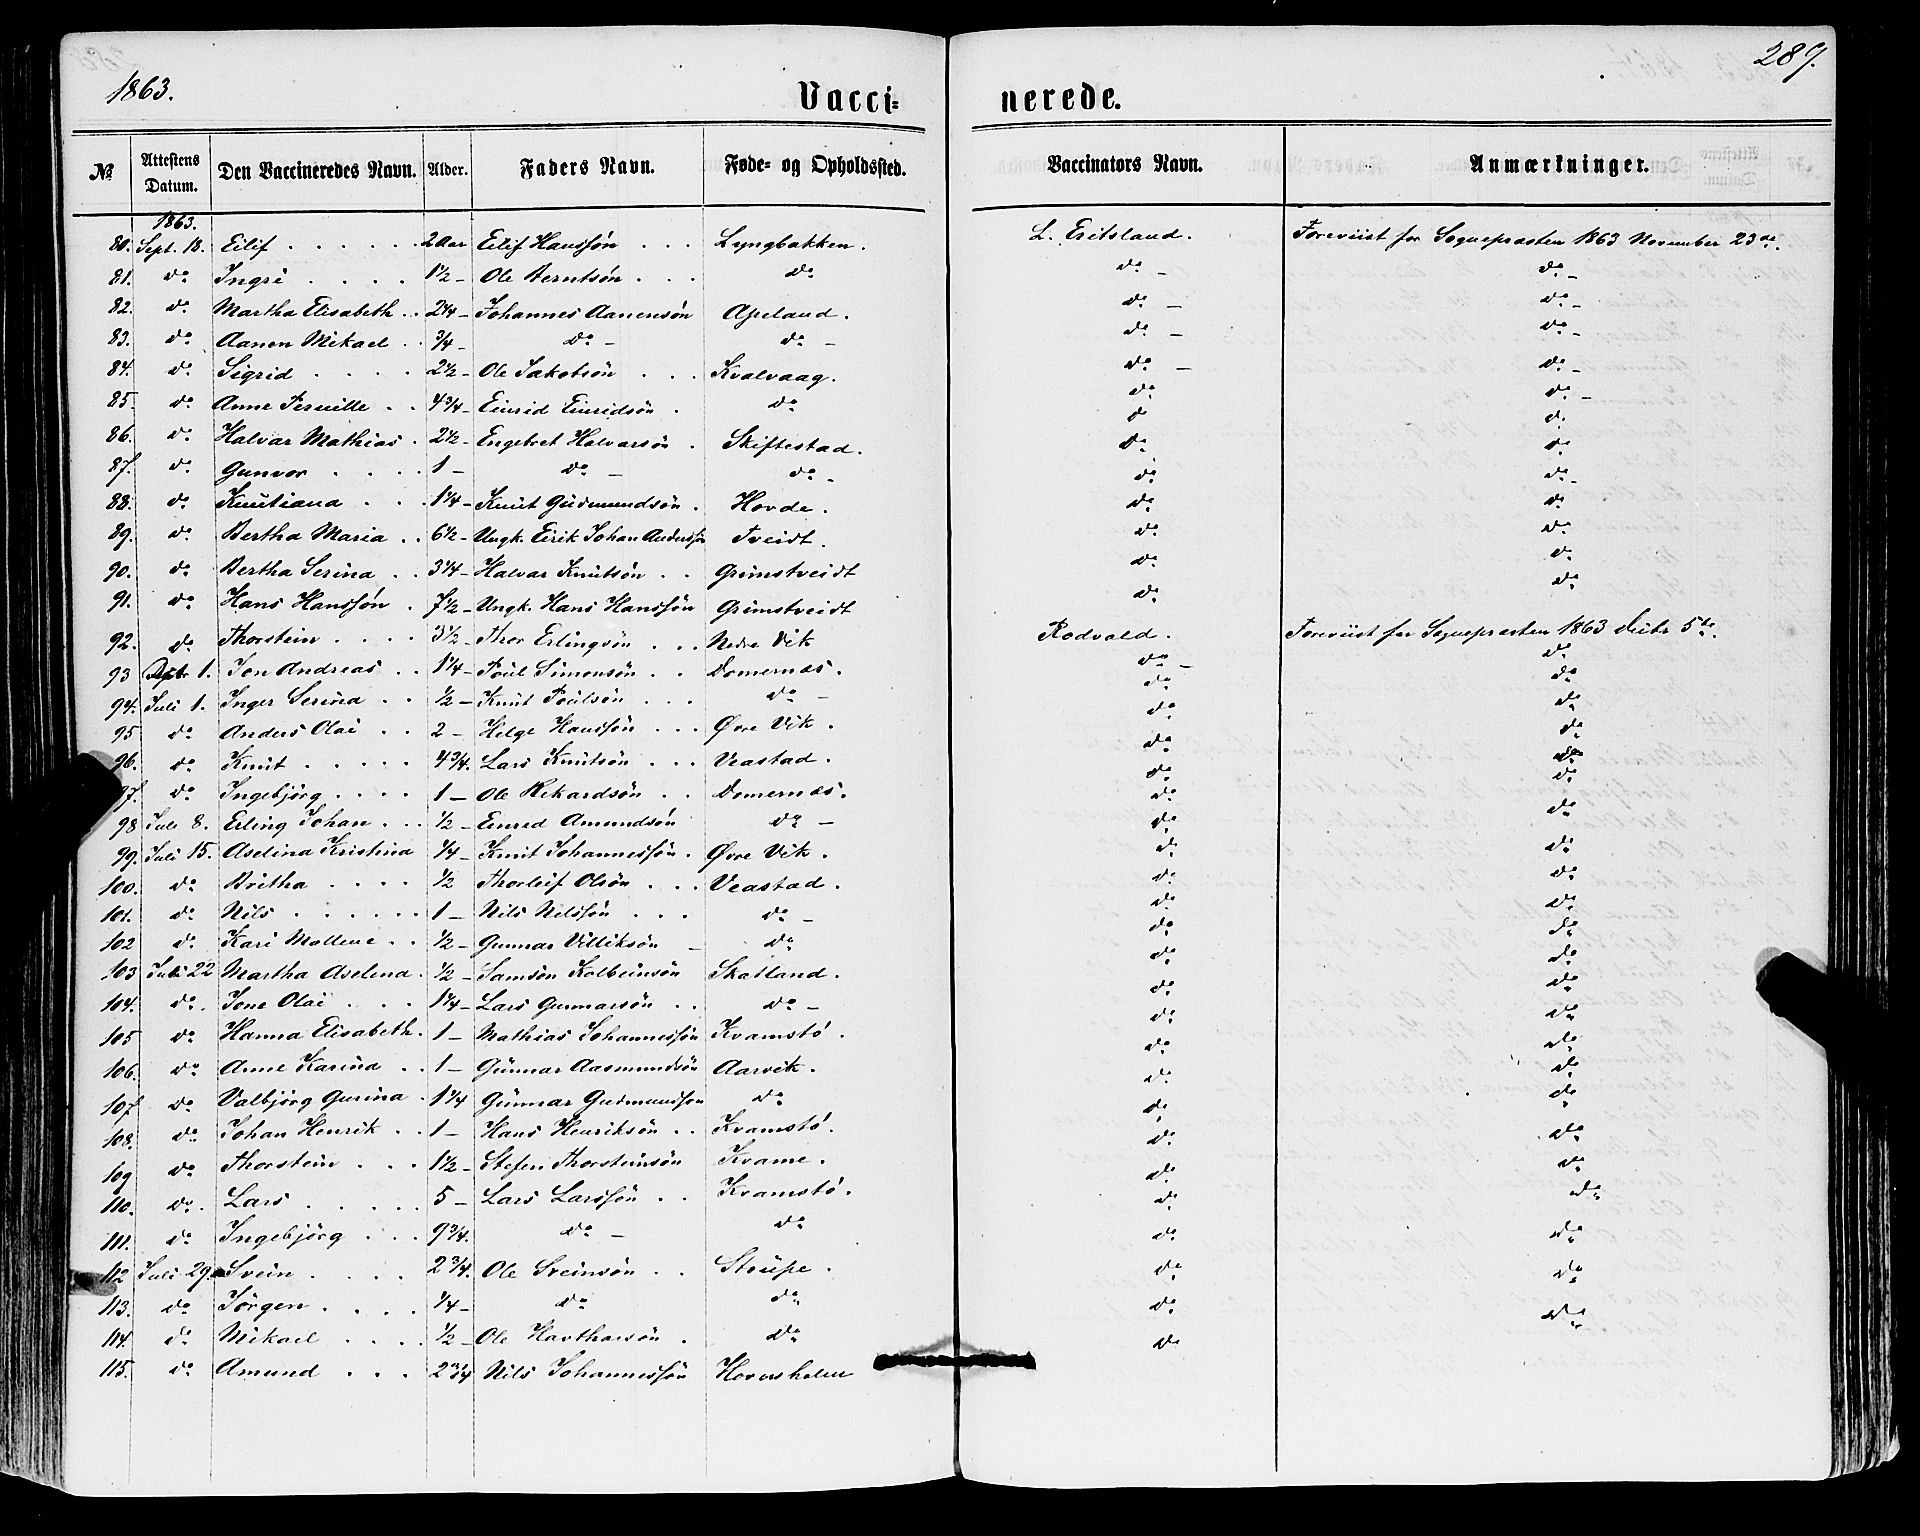 1863.
Vacci=
nerede.
289.
№
Attestens Datum.
Den Vaccineredes Navn.
Alder.
Faders Navn.
Føde= og Opholdssted.
Vaccinators Navn.
Anmærkninger.
1863.
80. Sept. 18. Eilif 2 Aar Eilif Hanssøn Lyngbakken. L. Eritsland. Foreviist for Sognepræsten 1863 November 23de.
81. do Ingri 1½ Ole Berntsøn do do do
82. do Martha Elisabeth 2¼ Johannes Aanensøn Apeland. do do
83. do Aanon Mikael ¾ do do do do
84. do Sigrid 2½ Ole Jakobsøn Kvalvaag. do do
85. do Anne Pernille 4¾ Einrid Einridsøn do do do
86. do Halvar Mathias 2½ Engebret Halvarsøn Skiftestad. do do
87. do Gunvor 1 do do do do
88. do Knutiana 1¼ Knut Gudmundsøn Hovde. do do
89. do Bertha Maria 6½ Ungk. Eirik Johan Anderssøn Tveidt. do do
90. do Bertha Serina 3¼ Halvar Knutsøn Grimstveidt do do
91. do Hans Hanssøn 7½ Ungk. Hans Hanssøn Grimstveidt do do
92. do Thorstein 3½ Thor Erlingsøn Nedre Vik Rodvald. Foreviist for Sognepræsten 1863 Decbr 5te.
93 1. Jon Andreas 1¼ Poul Simonsøn Domernæs. do do
94. Juli 1. Inger Serina ½ Knut Poulsøn do do do
95 do Anders Olai 2 Helge Hanssøn Øvre Vik. do do
96. do Knut 4¾. Lars Knutsøn Veastad. do do
97. do Ingebjørg 1 Ole Rikardsøn Domernæs. do do
98 Juli 8. Erling Johan ½ Einred Amundsøn do do do
99. Juli 15. Aselina Kristina ¼ Knut Johannessøn. Øvre Vik. do do
100. do Britha ½ Thorleif Olsøn Veastad. do do
101. do Nils 1 Nils Nilssøn do do do
102 do Kari Mallene ½ Gunnar Villiksøn do do do
103 Juli 22 Martha Aselena. ½ Samson Kolbeinsøn Skatland. do do
104. do. Jone Olai 1¼ Lars Gunnarsøn do do do
105 do Hanna Elisabeth. 1 Mathias Johannessøn Kvamstø. do do
106. do Anne Karina 1 Gunnar Aasmundsøn Aarvik. do do
107 do Valbjørg Gurina 1¼ Gunnar Gudmundsøn do do do
108. do Johan Henrik 1 Hans Henriksøn Kvamstø. do do
109 do Thorstein 1½ Stefen Thorsteinsøn Kvame. do do
110. do. Lars 5 Lars Larssøn Kvamstø. do do
111. do Ingebjørg 9¾. do do do do
112 Juli 29. Svein 2¾. Ole Sveinsøn Stoupe. do do
113. do Jørgen ¼ do do do do
114. do Mikael ½ Ole Havtharsøn do do
115. do Amund 2¾ Nils Johannessøn Hoversholm